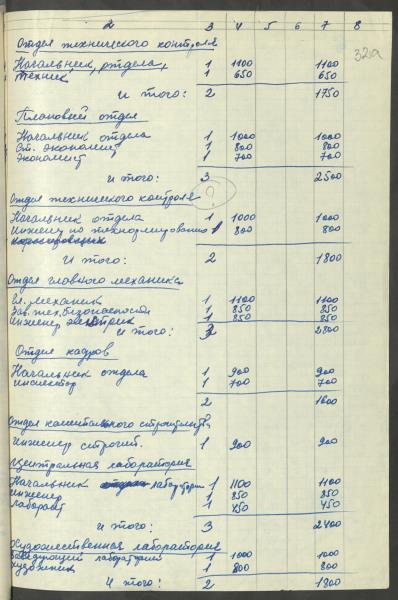 2 3 4 5 6 7 8
32а
Отдел технического контроля
Начальник отдела, 1 1100 1100
техник 1 650 650
И того: 2 1750
Плановий отдел
Начальник отдела 1 1000 1000
Ст. экономист 1 800 800
Экономист 1 700 700
И того: 3 2500
Отдел технического контроля
?
Начальник отдела 1 1000 1000
Инженер по технормированию 1 800 800
И того: 2 1800
Отдел главного механика
Гл. механик 1 1100 1100
Зав. тех. безопасности 1 850 850
инженер электрик 1 850 850
И того: 3 2800
Отдел кадров
Начальник отдела 1 900 900
инспектор 1 700 700
2 1600
Отдел капитального строительства
Инженер строит. 1 900 900
Центральная лаборатория
Начальник лаборатории 1 1100 1100
инженер 1 850 850
лаборант 1 450 450
И того: 3 2400
Художественная лаборатория
Заведующий лабораторией 1 1000 1000
художник 1 800 800
И того: 2 1800